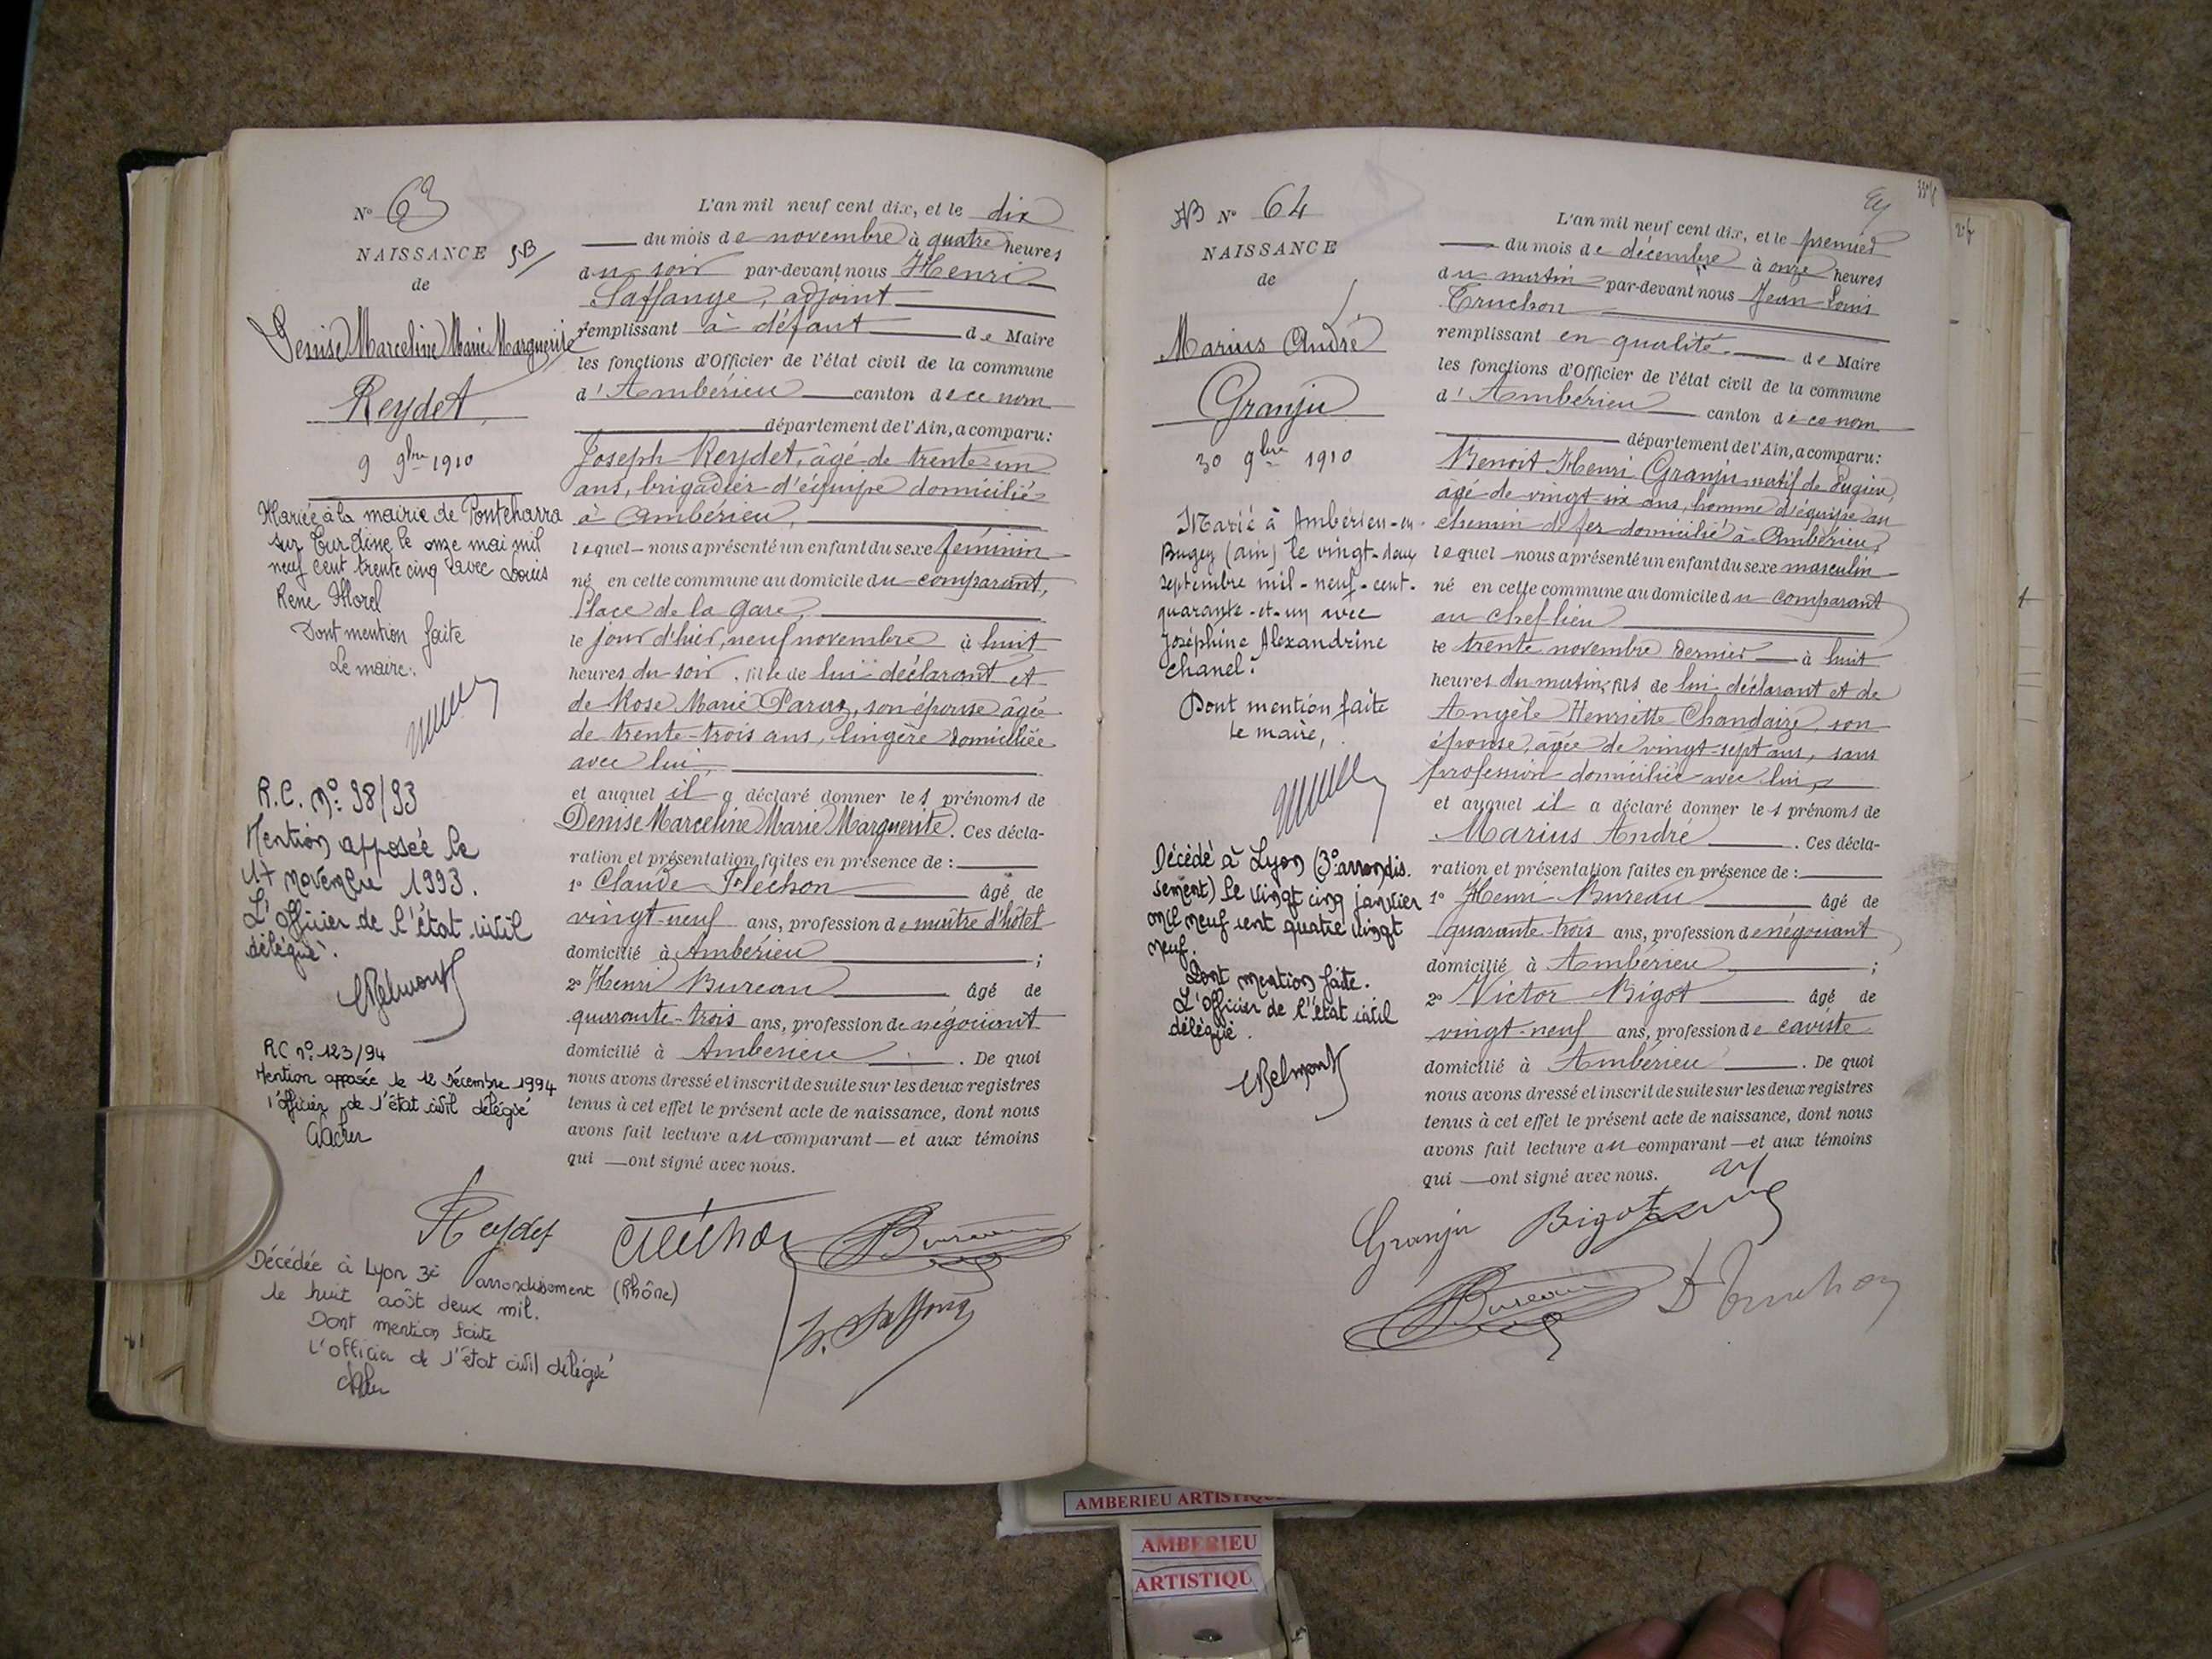 N° 63
NAISSANCE
de
Denise Marceline Marie Marguerite
Reydet
9 9bre 1910
Mariée à la mairie de Pontcharra
sur Turdine le onze mai mil
neuf cent trente cinq avec Louis
René Morel
Dont mention faite
Le maire:
R.C. N°: 98/93
Mention apposée le
17 novembre 1993.
L'Officier de l'état civil
délégué.
RC n°: 123/94
Mention apposée le 12 décembre 1994
l'officier de l'état civil délégué
L'an mil neuf cent dix, et le dix
du mois de novembre à quatre heures
du soir par-devant nous Henri
Saffange, adjoint
remplissant à défaut de Maire
les fonctions d'Officier de l'état civil de la commune
d'Ambérieu canton de ce nom
département de l'Ain, a comparu:
Joseph Reydet, âgé de trente-un
ans, brigadier d'équipe domicilié
à Ambérieu,
lequel nous a présenté un enfant du sexe féminin
né en cette commune au domicile du comparant,
Place de la Gare,
le jour d'hier, neuf novembre à huit
heures du soir, fille de lui déclarant et
de Rose Marie, son épouse âgée
de trente-trois ans, lingère domiciliée
avec lui,
et auquel il a déclaré donner les prénoms de
Denise Marceline Marie Marguerite. Ces décla-
ration et présentation faites en présence de:
1° Claude Fléchon âgé de
vingt-neuf ans, profession de maître d'hôtel
domicilié à Ambérieu;
2° Henri Bureau âgé de
quarante-trois ans, profession de négociant
domicilié à Ambérieu. De quoi
nous avons dressé et inscrit de suite sur les deux registres
tenus à cet effet le présent acte de naissance, dont nous
avons fait lecture au comparant et aux témoins
qui ont signé avec nous.
Reydet Fléchon Bureau
Décédée à Lyon 3è arrondissement (Rhône)
le huit août deux mil.
Dont mention faite
L'officier de l'état civil délégué
N° 64
NAISSANCE
de
Marius André
Granju
30 9bre 1910
Marié à Ambérieu-en-
Bugey (ain) le vingt-deux
septembre mil-neuf-cent-
quarante-et-un avec
Joséphine Alexandrine
Chanel.
Dont mention faite
le maire,
Décédé à Lyon (3°: arrondis.
sement) le vingt cinq janvier
mil neuf cent quatre vingt
neuf.
Dont mention faite.
L'Officier de l'état civil
délégué.
L'an mil neuf cent dix, et le premier
du mois de décembre à onze heures
du matin par-devant nous Jean Louis
Truchon
remplissant en qualité de Maire
les fonctions d'Officier de l'état civil de la commune
d'Ambérieu canton de ce nom
département de l'Ain, a comparu:
Benoit Henri Granju natif de
âgé de vingt-six ans, homme d'équipe au
chemin de fer domicilié à Ambérieu,
lequel nous a présenté un enfant du sexe masculin
né en cette commune au domicile du comparant
au chef lieu
le trente novembre dernier à huit
heures du matin, fils de lui déclarant et de
Angèle Henriette, son
épouse, âgée de vingt-sept ans, sans
profession domiciliée avec lui,
et auquel il a déclaré donner les prénoms de
Marius André. Ces décla-
ration et présentation faites en présence de:
1° Henri Bureau âgé de
quarante trois ans, profession de négociant
domicilié à Ambérieu;
2° Victor Bigot âgé de
vingt-neuf ans, profession de caviste
domicilié à Ambérieu. De quoi
nous avons dressé et inscrit de suite sur les deux registres
tenus à cet effet le présent acte de naissance, dont nous
avons fait lecture au comparant et aux témoins
qui ont signé avec nous.
Granju Bigot
Bureau Truchon
AMBERIEU ARTISTIQUE
AMBERIEU
ARTISTIQU